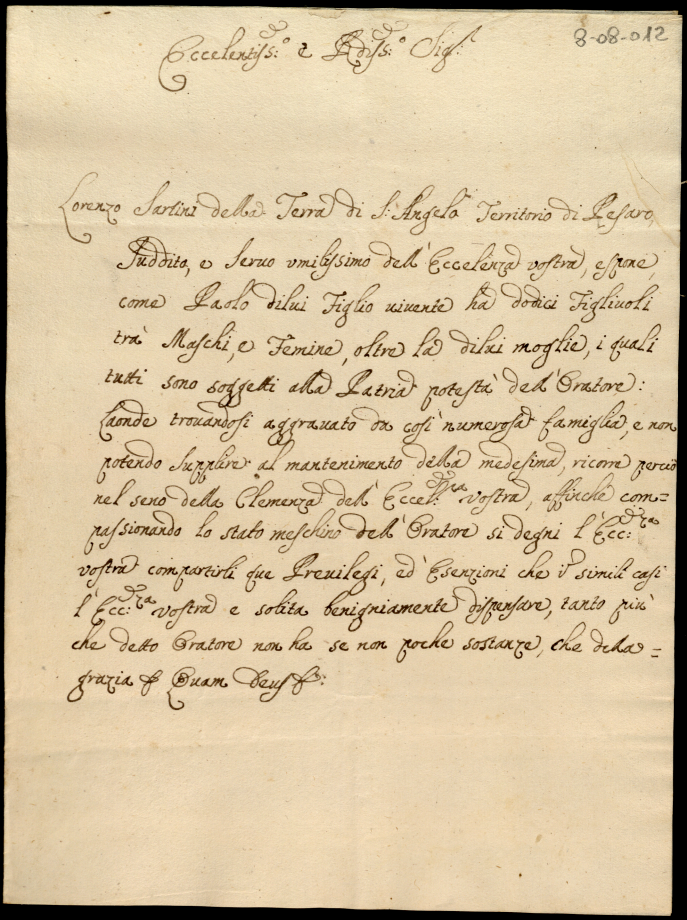 8-08-012
Eccelentiss:o e Rdiss:o Sig.r
Lorenzo Sartini della Terra di S: Angelo Territorio di Pesaro,
Suddito, e Servo vmilissimo dell' Eccelenza vostra, espone,
come Paolo dilui Figlio vivente ha dodici Figlivoli
trà Maschi, e Femine, oltre la dilui moglie, i quali
tutti sono soggetti alla Patria potestà dell' Oratore:
Laonde trovandosi aggravato da così numerosa famiglia, e non
potendo Supplire al mantenimento della medesima, ricorre perciò
nel seno della Clemenza dell' Eccell:za vostra, affinche com=
passionando lo stato meschino dell' Oratore si degni l' Ecc:za
vostra compartirli que Previlegi, ed Esenzioni che in simili casi
l' Ecc:za vostra e solita benigniamente dispensare, tanto più
che detto Oratore non ha se non poche sostanze, che della=
grazia Quam Deus